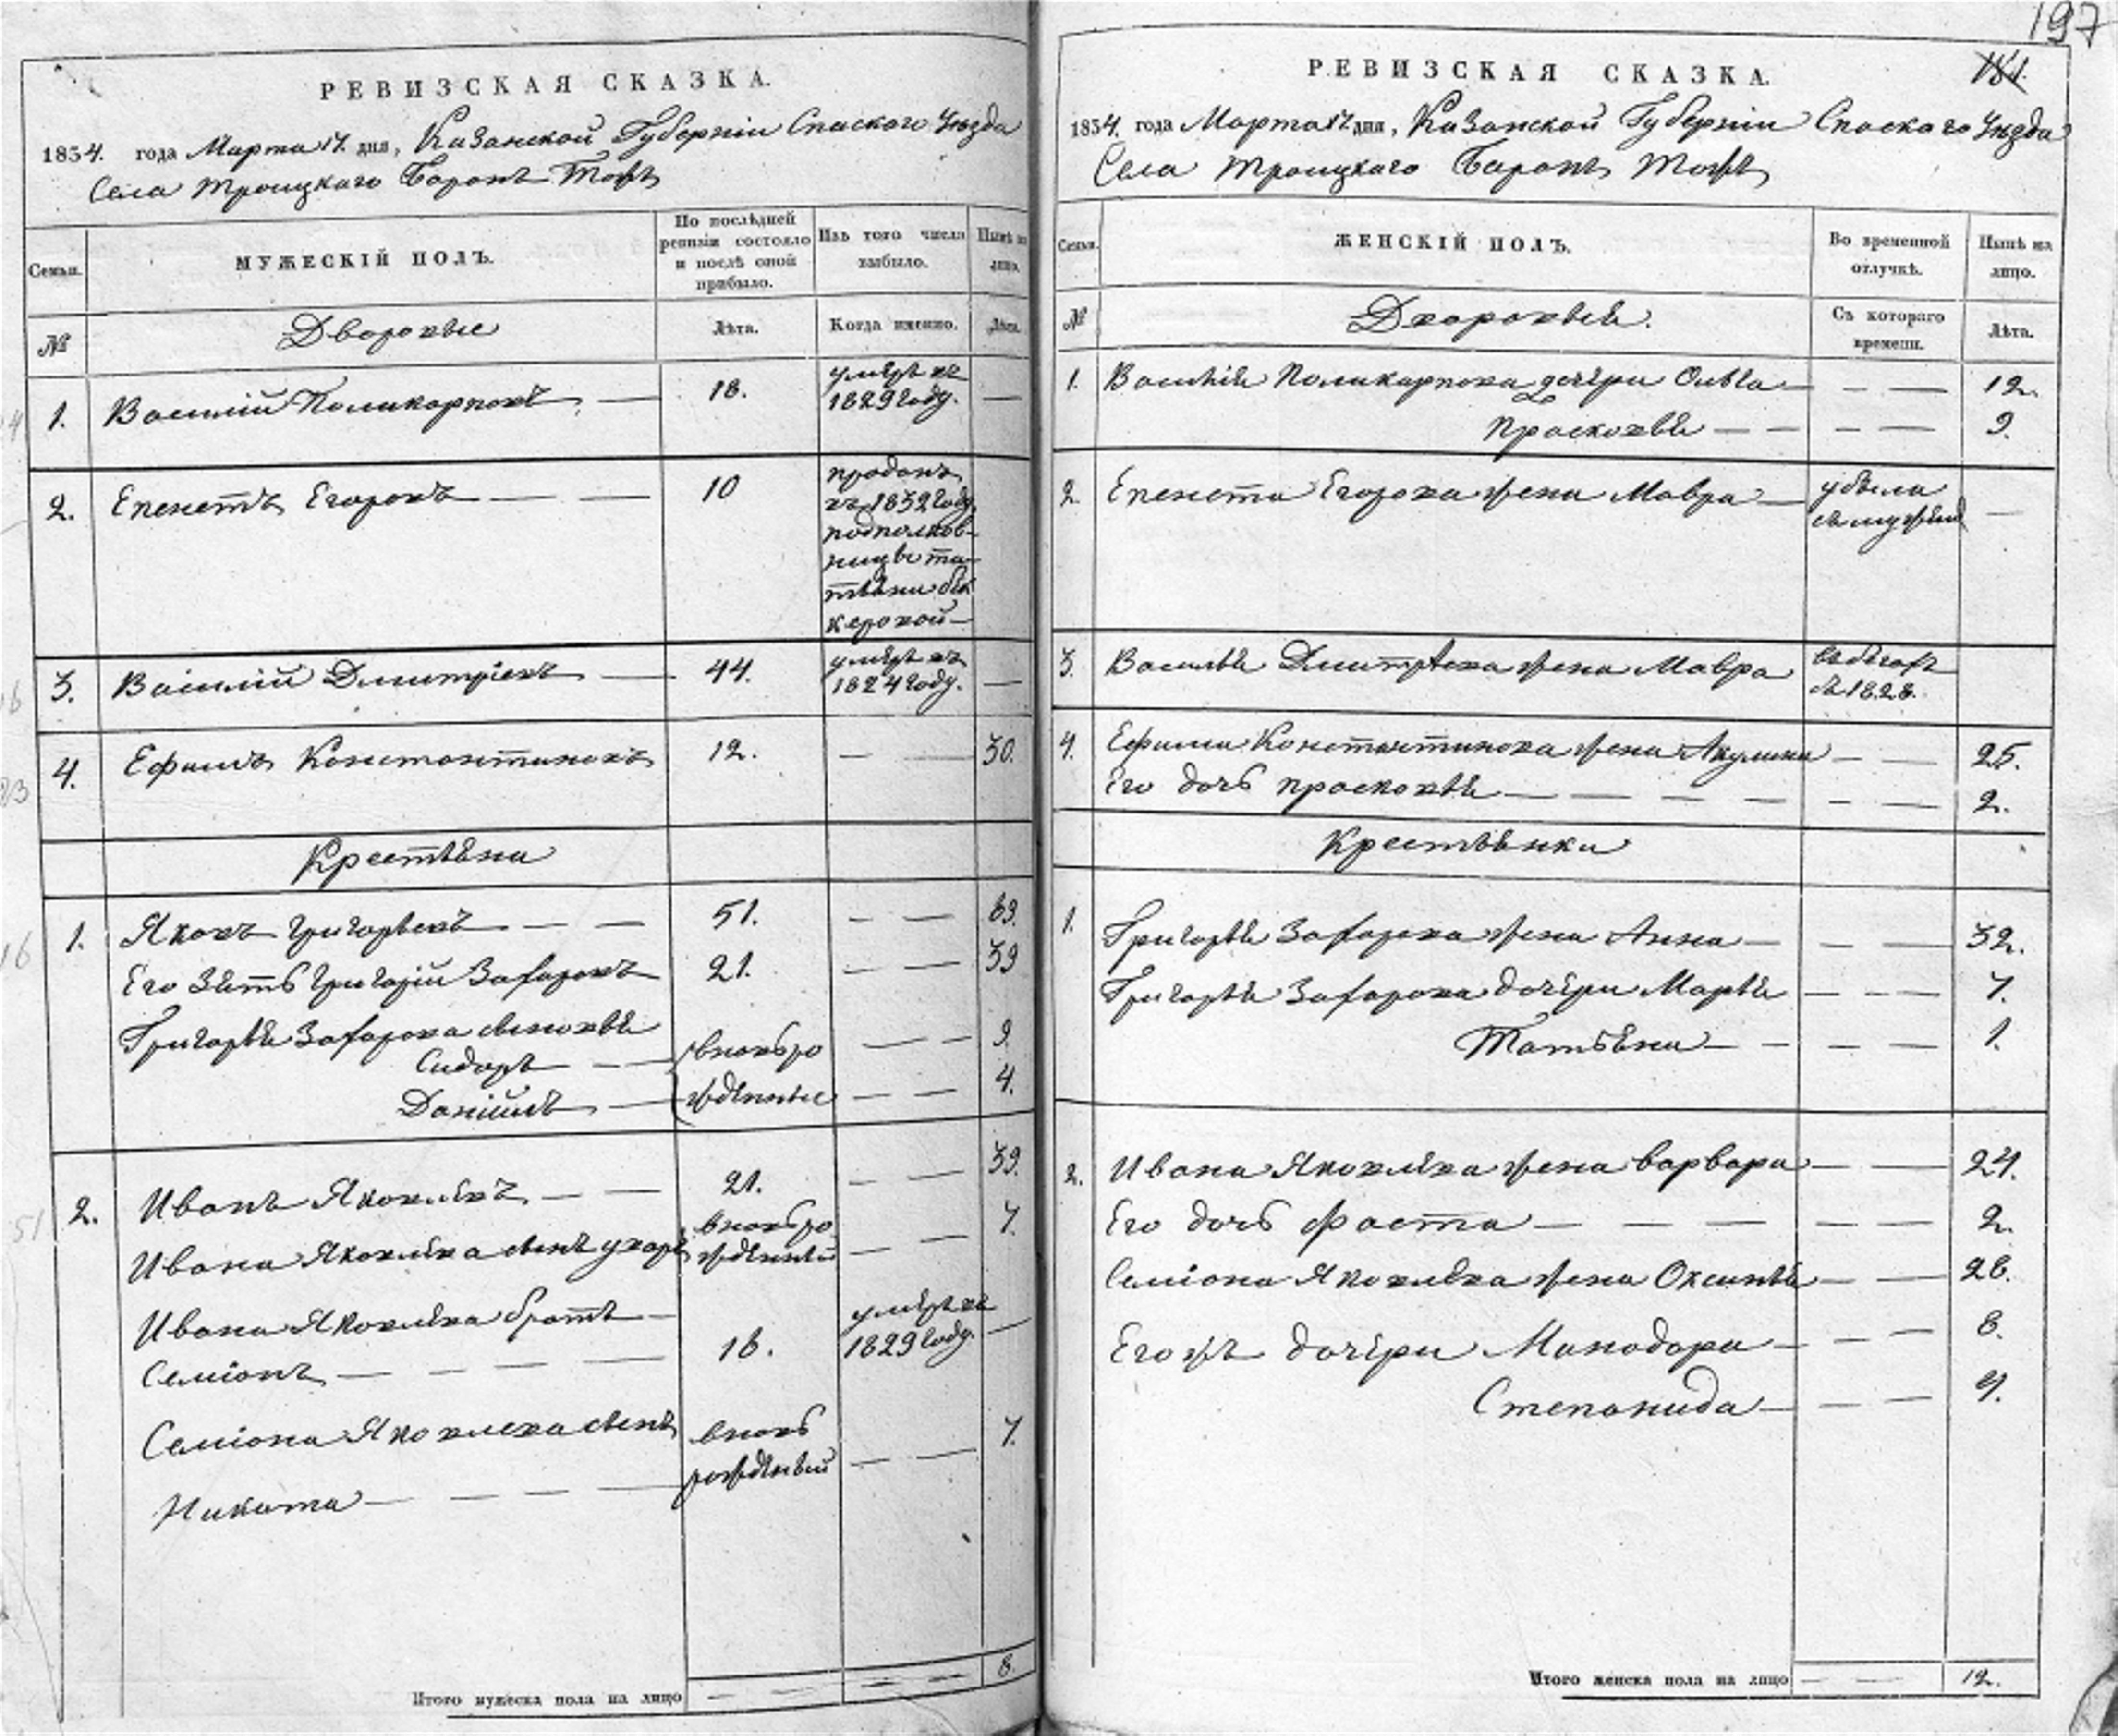 197
РЕВИЗСКАЯ СКАЗКА.
1834. года Марта 17. дня, Казанской Губерніи Спаскаго Уезда
Села Троицкаго Баранъ тожъ
Семьи.
МУЖЕСКІЙ ПОЛЪ.
По послѣдней ревизіи состояло и послѣ оной прибыло.
Изъ того числа выбыло.
Нынѣ на лицо.
№
Дворовые
Лѣта.
Когда именно.
Лѣта.
1. Василій Поликарповъ 18. умеръ въ
1829 году.
2. Епенетъ Егоровъ 10 проданъ
въ 1832 году
подполков-
ницы та-
тьяни
3. Василій Дмитріевъ 44. умеръ въ
1824 году.
4. Ефимъ Константиновъ 12. 30.
Крестьяни
1. Яковъ Григорьевъ 51. 69.
Его Зять Григорій Захаровъ 21. 39
Григорья Захарова сыновья
Сидоръ вновь ро 9.
Даніилъ жденные 4.
2. Иванъ Яковлевъ 21. 39.
Ивана Яковлева сынъ вновь ро
жденный 7.
Ивана Яковлева братъ умеръ въ
Семіонъ 18. 1829 году.
Семіона Яковлева сынъ вновь 7.
Никита рожденый
Итого мужеска пола на лицо 8.
РЕВИЗСКАЯ СКАЗКА.
181.
1834. года Марта 17 дня, Казанской Губерніи Спаскаго Уезда
Села Троицкаго Баранъ тожъ
Семьи.
ЖЕНСКІЙ ПОЛЪ.
Во временной отлучкѣ.
Нынѣ на лицо.
№
Дворовыя.
Съ котораго времени.
Лѣта.
1. Василія Поликарпова дочери Ольга 12.
2я
Просковья 9.
2. Епенета Егорова жена Мавра убыла
съ мужемъ
3. Василья Дмитрева жена Мавра въ бегахъ
съ 1828.
4. Ефима Константинова жена Акулина 25.
Его дочь просковья 2.
Крестьянки
1. Григорья Захарова жена Анна 32.
Григорья Захарова дочери Марья 7.
Татьяна 1.
2. Ивана Яковлева жена варвара 24.
Его дочь 2.
Семіона Яковлева жена Оксинья 28.
Его жъ дочери Минодора 8.
Степанида 4.
Итого женска пола на лицо 12.